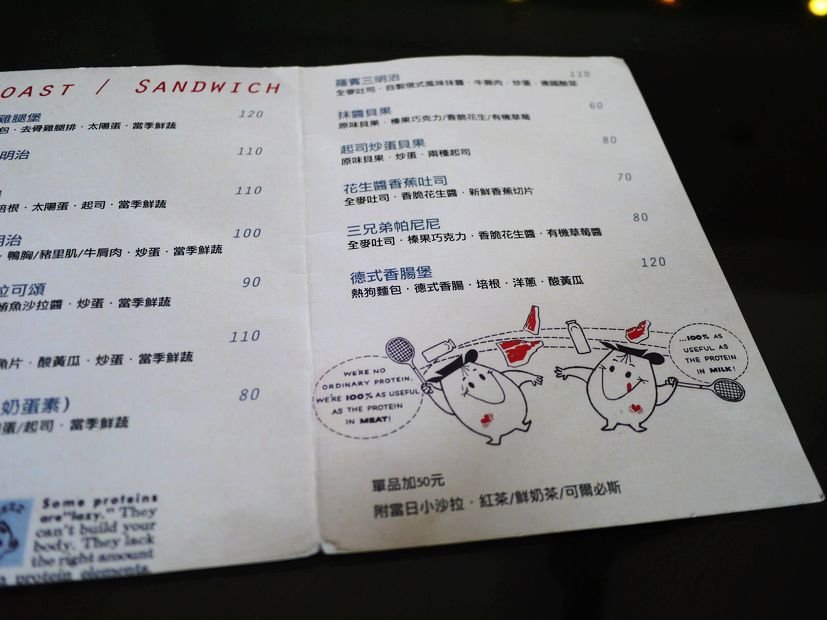 OAST / SANDWICH
雞腿堡 120
包．去骨雞腿排．太陽蛋．當季鮮蔬
明治 110
110
培根．太陽蛋．起司．當季鮮蔬
明治 100
．鴨胸/豬里肌/牛肩肉．炒蛋．當季鮮蔬
拉可頌 90
鮪魚沙拉醬．炒蛋．當季鮮蔬
110
魚片．酸黃瓜．炒蛋．當季鮮蔬
奶蛋素） 80
蛋/起司．當季鮮蔬
Some proteins
are "lazy." They
can't build your
body. They lack
the right amount
protein elements.
羅賓三明治 110
全麥吐司．自製俄式風味抹醬．牛肩肉．炒蛋．德國酸菜
抹醬貝果 60
原味貝果．榛果巧克力/香脆花生/有機草莓
起司炒蛋貝果 80
原味貝果．炒蛋．兩種起司
花生醬香蕉吐司 70
全麥吐司．香脆花生醬．新鮮香蕉切片
三兄弟帕尼尼 80
全麥吐司．榛果巧克力．香脆花生醬．有機草莓醬
德式香腸堡 120
熱狗麵包．德式香腸．培根．洋蔥．酸黃瓜
WE'RE NO
ORDINARY PROTEIN.
WE'RE 100% AS USEFUL
AS THE PROTEIN
IN MEAT!
...100% AS
USEFUL AS
THE PROTEIN
IN MILK!
單品加50元
附當日小沙拉．紅茶/鮮奶茶/可爾必斯